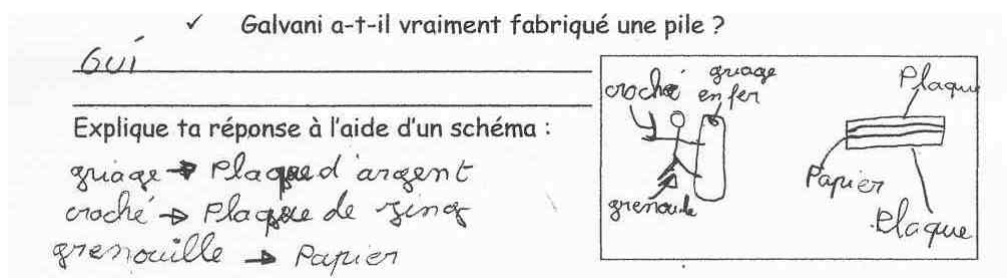 ✓ Galvani a-t-il vraiment fabriqué une pile ?
Oui
Explique ta réponse à l'aide d'un schéma :
griage → Plaque d'argent
croché → Plaque de zing
grenouille → Papier
croché
griage
en fer
grenouile
Plaque
Papier
Plaque